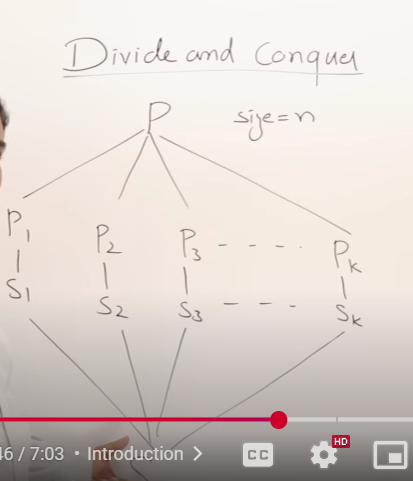 Divide and Conquer
P size=n
P1 P2 P3 - - - - Pk
S1 S2 S3 - - - Sk
46 / 7:03 • Introduction >
CC HD